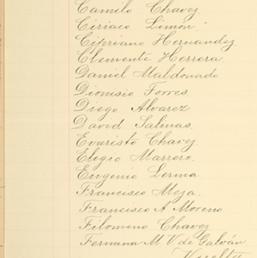 Camilo Chavez
Ciriaco Limón
Cipriano Hernandez
Clemente Herrera
Daniel Maldonado
Dionisio Torres
Diego Alvarez
David Salinas
Evaristo Chavez
Eligio Marrero
Eugenio Lerma
Francisco Meza
Francisco A Moreno
Filomeno Chavez
Fernana M V de Galván